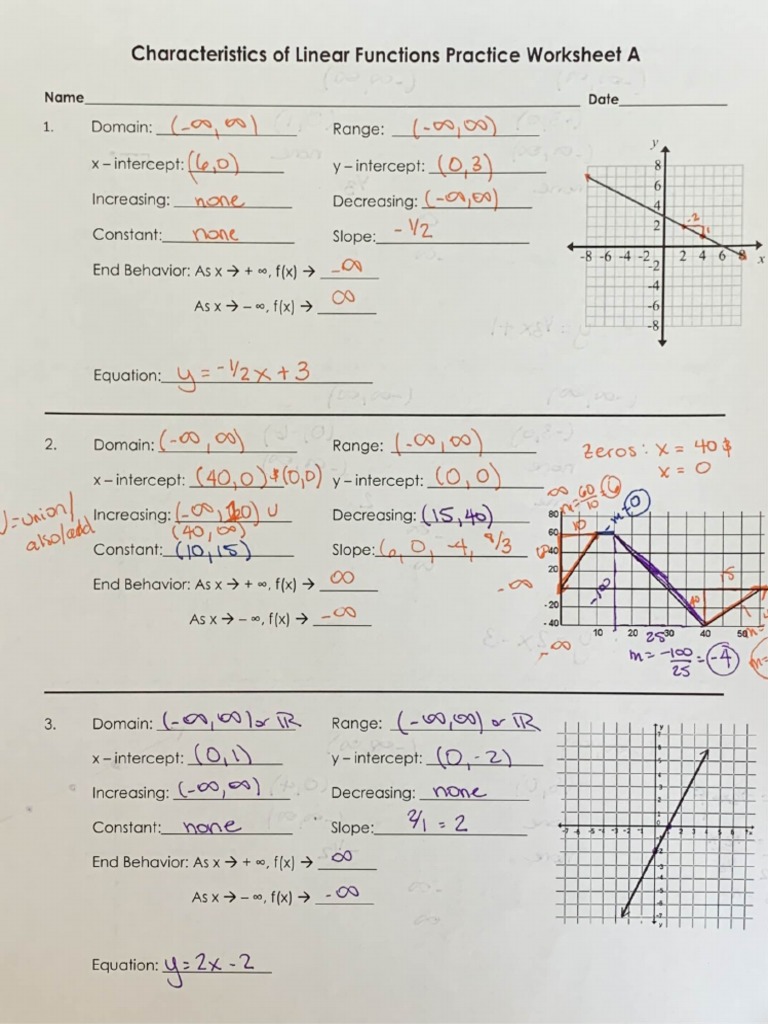 Characteristics of Linear Functions Practice Worksheet A
Name Date
1. Domain: (-∞, ∞) Range: (-∞, ∞)
x – intercept: (6,0) y – intercept: (0,3)
Increasing: none Decreasing: (-∞,∞)
Constant: none Slope: - 1/2
End Behavior: As x → + ∞, f(x) → -∞
As x → – ∞, f(x) → ∞
Equation: y = -1/2x + 3
y
8
6
4
2
-8 -6 -4 -2 2 4 6 8 x
-2
-4
-6
-8
-2
2. Domain: (-∞, ∞) Range: (-∞, ∞)
zeros: x = 40 &
x = 0
x – intercept: (40,0) & (0,0) y – intercept: (0,0)
U = union/
also/add
Increasing: (-∞, 10) U
(40, ∞)
Decreasing: (15,40)
Constant: (10,15) Slope: (6, 0, -4, 8/3
End Behavior: As x → + ∞, f(x) → ∞
As x → – ∞, f(x) → -∞
∞ m= 60/10 6
m=0
10
80
60
40
20
-20
-40
10 20 30 40 50
-100
15
40
25
-∞
-∞
m = -100/25 = -4
m=
3. Domain: (-∞,∞) or ℝ Range: (-∞,∞) or ℝ
x – intercept: (0,1) y – intercept: (0,-2)
Increasing: (-∞,∞) Decreasing: none
Constant: none Slope: 2/1 = 2
End Behavior: As x → + ∞, f(x) → ∞
As x → – ∞, f(x) → -∞
Equation: y = 2x - 2